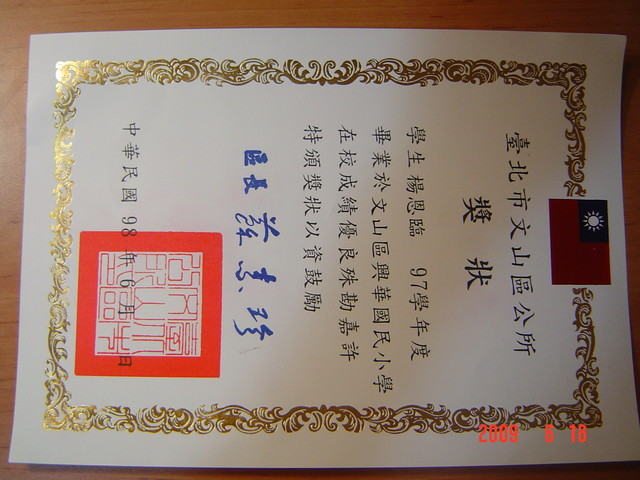 臺北市文山區公所
獎狀
學生楊恩臨 97學年度
畢業於文山區興華國民小學
在校成績優良殊勘嘉許
特頒獎狀以資鼓勵
區長
中華民國 98 年 6 月 日
2009 6 18